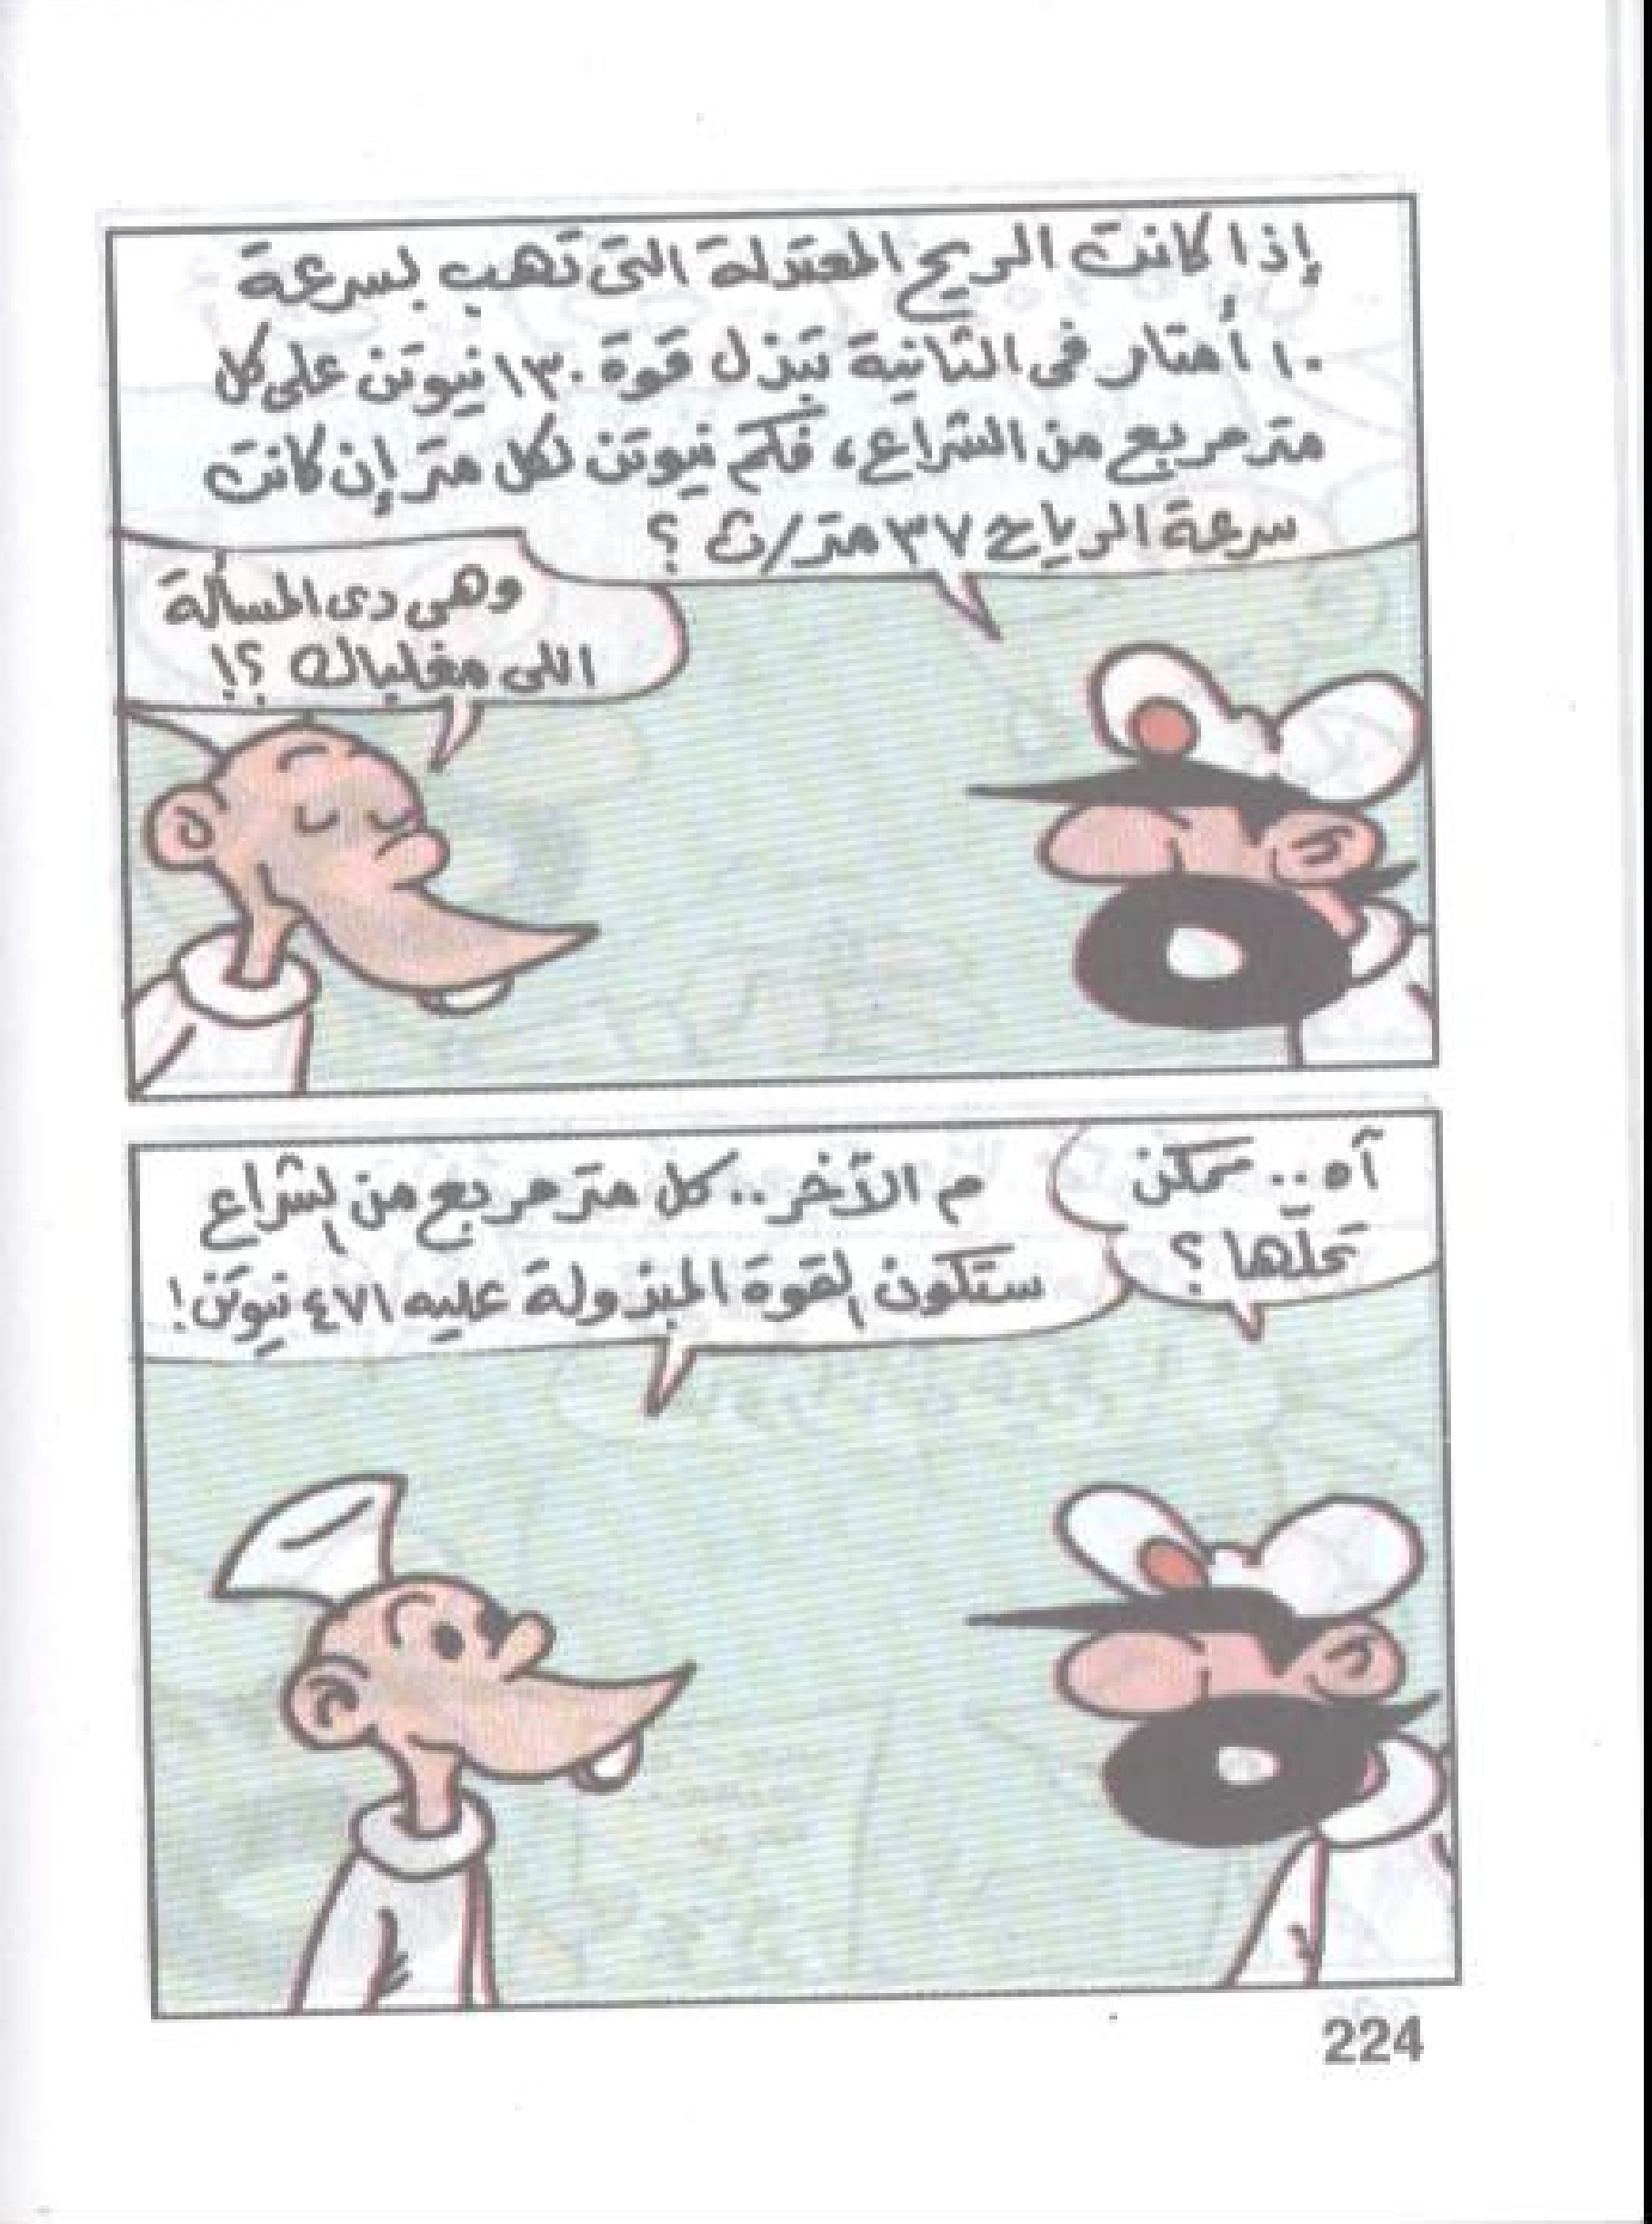 إذا كانت الريح المعتدلة التى تهب بسرعة
١٠ أمتار فى الثانية تبذل قوة ١٣٠ نيوتن على كل
متر مربع من الشراع، فكم نيوتن لكل متر إن كانت
سرعة الرياح ٣٧ متر/ث ؟
وهى دى المسألة
اللى مغلباك ؟!
آه.. ممكن
تحلّها ؟
م الآخر.. كل متر مربع من الشراع
ستكون القوة المبذولة عليه ٤٧١ نيوتن!
224